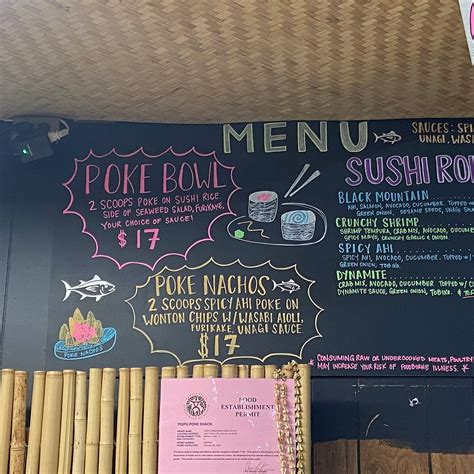 MENU
SAUCES: SPI
UNAGI, WASA
POKE BOWL
2 SCOOPS POKE ON SUSHI RICE
SIDE OF SEAWEED SALAD, FURIKAKE,
YOUR CHOICE OF SAUCE!
$17
POKE NACHOS
2 SCOOPS SPICY AHI POKE ON
WONTON CHIPS W/ WASABI AIOLI,
FURIKAKE, UNAGI SAUCE
$17
POKE NACHOS
SUSHI RO
BLACK MOUNTAIN
AHI, SALMON, AVOCADO, CUCUMBER. TOPPED
GREEN ONION, SESAME SEEDS, UNAGI
CRUNCHY SHRIMP
SHRIMP TEMPURA, CRAB MIX, AVOCADO, CUCUMBER
SPICY MAYO, CRUNCHY GARLIC & ONION.
SPICY AHI
SPICY AHI, AVOCADO, CUCUMBER. TOPPED W/
GREEN ONION, TOBIKO.
DYNAMITE
CRAB MIX, AVOCADO, CUCUMBER TOPPED W/
DYNAMITE SAUCE, GREEN ONION, TOBIKO. &
* CONSUMING RAW OR UNDERCOOKED MEATS, POULTRY
MAY INCREASE YOUR RISK OF FOODBORNE ILLNESS. *
FOOD
ESTABLISHMENT
PERMIT
POIPU POKE SHACK